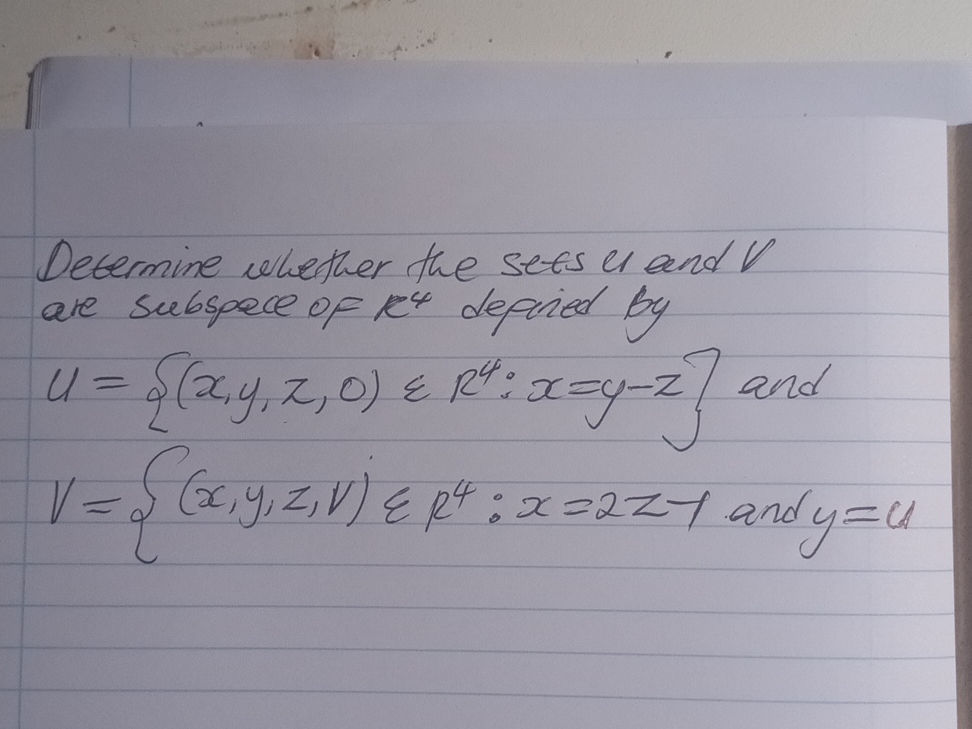 Determine whether the sets U and V
are subspace of R⁴ defined By
U = {(x, y, z, 0) ε R⁴ : x=y-z} and
V = { (x, y, z, V) ε R⁴ : x=2z-1 and y=u